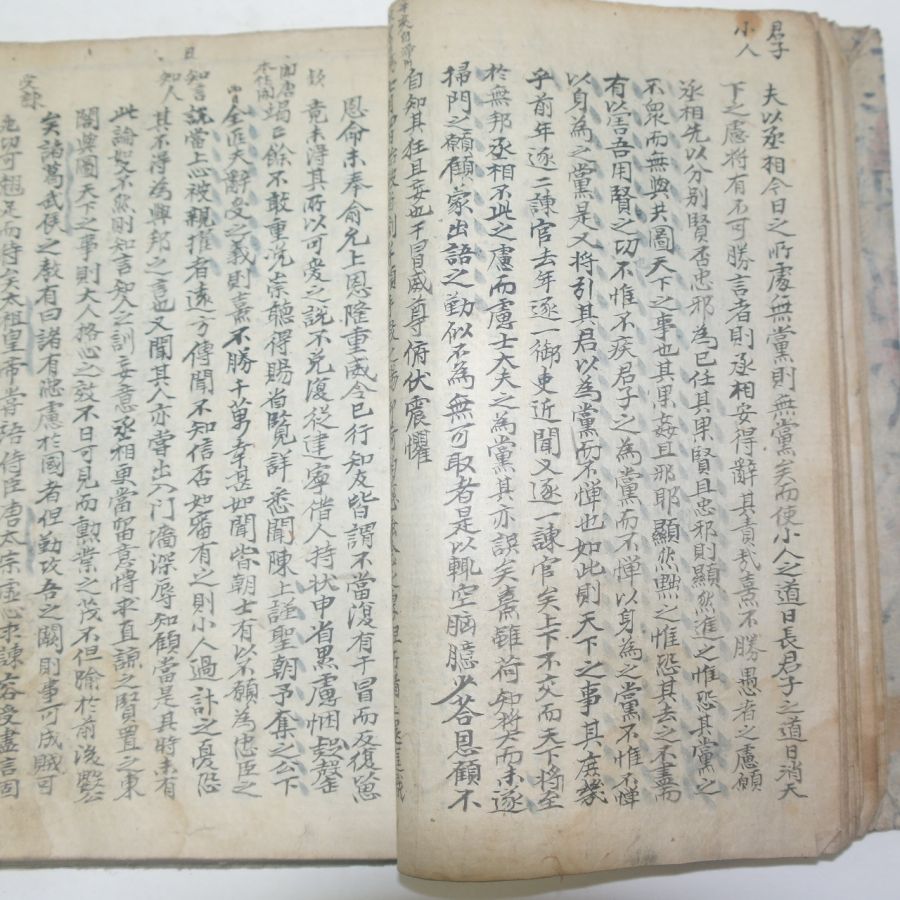 君子
小人
夫以丞相今日之所處無黨則無黨矣而使小人之道日長君子之道日消天
下之慮將有不可勝言者則丞相安得辭其責哉熹不勝愚者之慮願
丞相先以分別賢否忠邪為己任其果賢且忠邪則顯然進之惟恐其黨之
不眾而無與共圖天下之事也其果姦且邪耶顯然黜之惟恐其去之不盡而
有以害吾用賢之功不惟不疾君子之為黨而不憚以身為之黨不惟不憚
以身為之黨是又將引其君以為黨而不憚也如此則天下之事其庶幾
乎前年逐二諫官去年逐一御史近聞又逐一諫官矣上下不交而天下將至
於無邦丞相不此之慮而慮士大夫之為黨其亦誤矣熹雖荷知獎而未遂
掃門之願顧家出語之勤似不為無可取者是以輒空腦臆少荅恩顧不
自知其狂且妄也干冒威尊俯伏震懼
恩命未奉俞允上恩隆重威令已行知友皆謂不當復有干冒而反復思
竟未得其所以可受之說不免復從建寧借人持狀申省黑慮悃款罄
竭已餘不敢重浼崇聽得賜省覽詳悉聞陳上謹聖朝予奪之公下
全匹夫辭受之義則熹不勝千萬幸甚如聞皆朝士有以不願為忠臣之
說當上心被親擢者遠方傳聞不知信否如審有之則小人過計之憂恐
知言
知人
其不得為興邦之言也又聞其人亦嘗出入門牆深辱知顧當是其時未有
此論如不然則知言知人之訓妄意丞相更當留意博求直諒之賢置之東
閤與圖天下之事則大人格心之效不日可見而勳業之茂不但隃於前後
矣諸葛武侯之教有曰諸有忠慮於國者但勤攻吾之闕則事可成賊可
死功可翹足而待矣太祖皇帝嘗語侍臣唐太宗虛心求諫容受盡言固